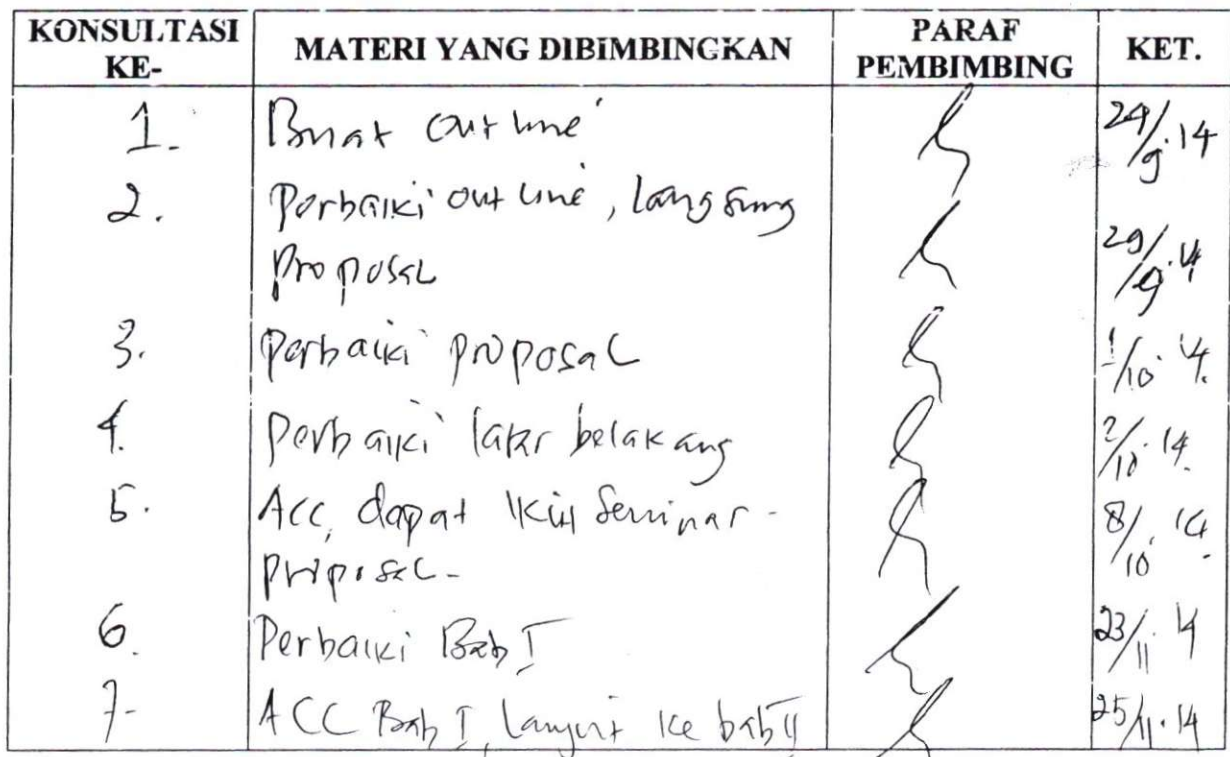 KONSULTASI KE- MATERI YANG DIBIMBINGKAN PARAF PEMBIMBING KET.
1. Buat Outline 24/9.14
2. Perbaiki outline, langsung
proposal 29/9.14
3. Perbaiki proposal 1/10.14.
4. Perbaiki latar belakang 2/10.14.
5. ACC, dapat ikut Seminar -
proposal - 8/10.14.
6. Perbaiki Bab I 23/11.14
7- ACC Bab I, lanjut ke bab II 25/11.14